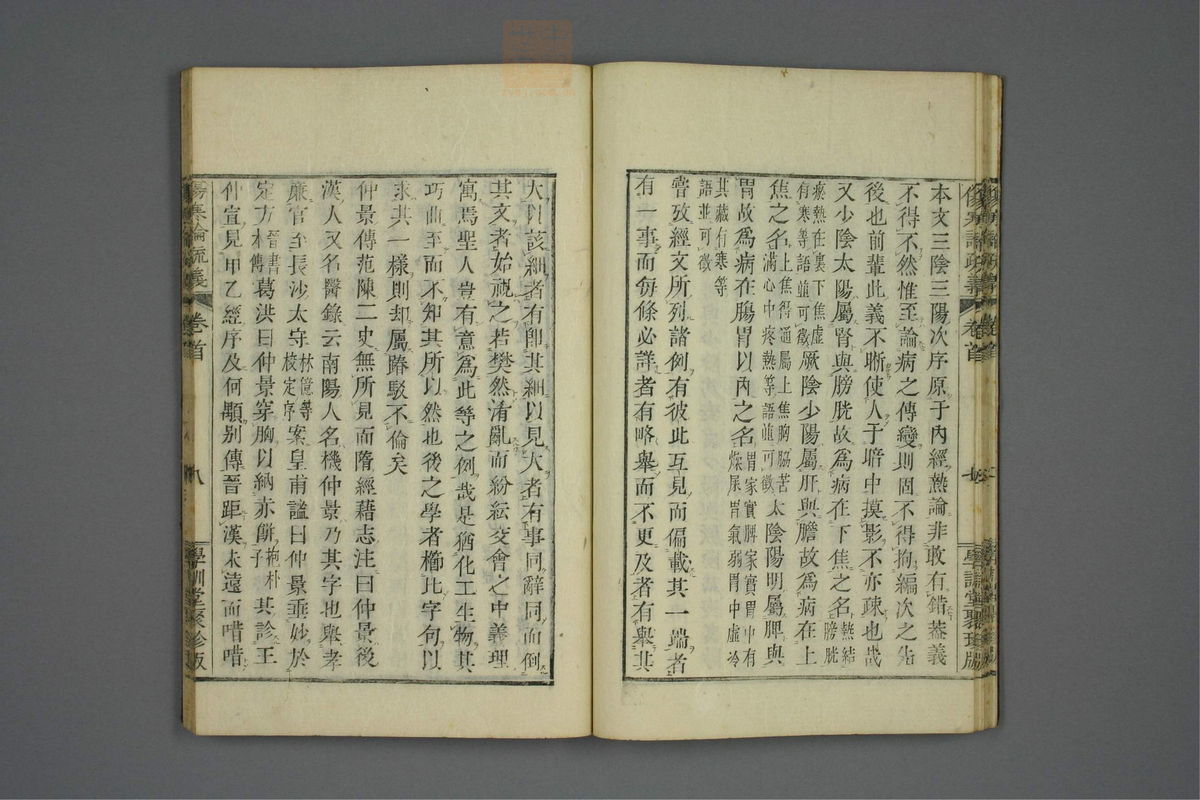 本文三陰三陽次序原于內經熱論非敢有錯葢義
不得不然惟至論病之傳變則固不得拘編次之先
後也前輩此義不晰使人于暗中摸影不亦疎也哉
又少陰太陽屬腎與膀胱故爲病在下焦之名熱結膀胱
瘀熱在裏下焦虛有寒等語並可徵厥陰少陽屬肝與膽故爲病在上
焦之名上焦得通屬上焦胸脇苦滿心中疼熱等語並可徵太陰陽明屬脾與
胃故爲病在腸胃以內之名胃家實脾家實胃中有燥屎胃氣弱胃中虛冷
其藏有寒等語並可徵
嘗攷經文所列諸例有彼此互見而偏載其一端者
有一事而每條必詳者有略舉而不更及者有舉其
大以該細者有卽其細以見大者有事同辭同而倒
其文者始視之若樊然淆亂而紛紜交會之中義理
寓焉聖人豈有意爲此等之例哉是猶化工生物其
巧曲至而不知其所以然也後之學者櫛比字句以
求其一樣則却屬踳駁不倫矣
仲景傳范陳二史無所見而隋經藉志注曰仲景後
漢人又名醫錄云南陽人名機仲景乃其字也舉孝
廉官至長沙太守林億等校定序案皇甫謐曰仲景垂妙於
定方晉書本傳葛洪曰仲景穿胸以納赤餅抱朴子其診王
仲宣見甲乙經序及何顒别傳晉距漢未遠而嘖嘖
傷寒論疏義
卷首
八
學訓堂聚珍版